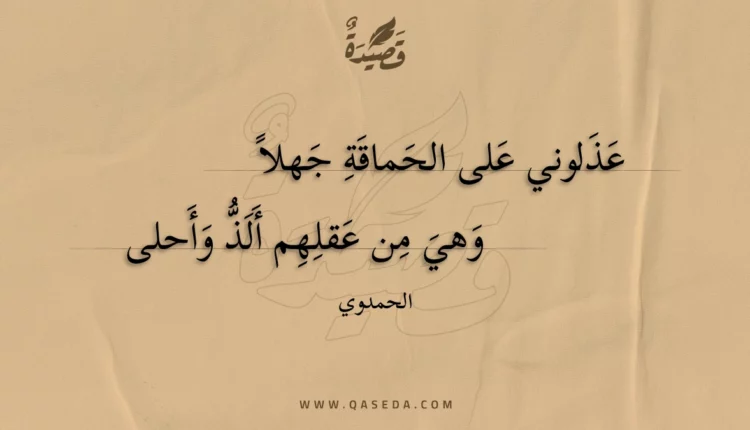 قَصِيدَةٌ
عَذَلوني عَلى الحَماقَةِ جَهلاً
وَهيَ مِن عَقلِهِم أَلَذُّ وَأَحلى
الحمدوي
WWW.QASEDA.COM